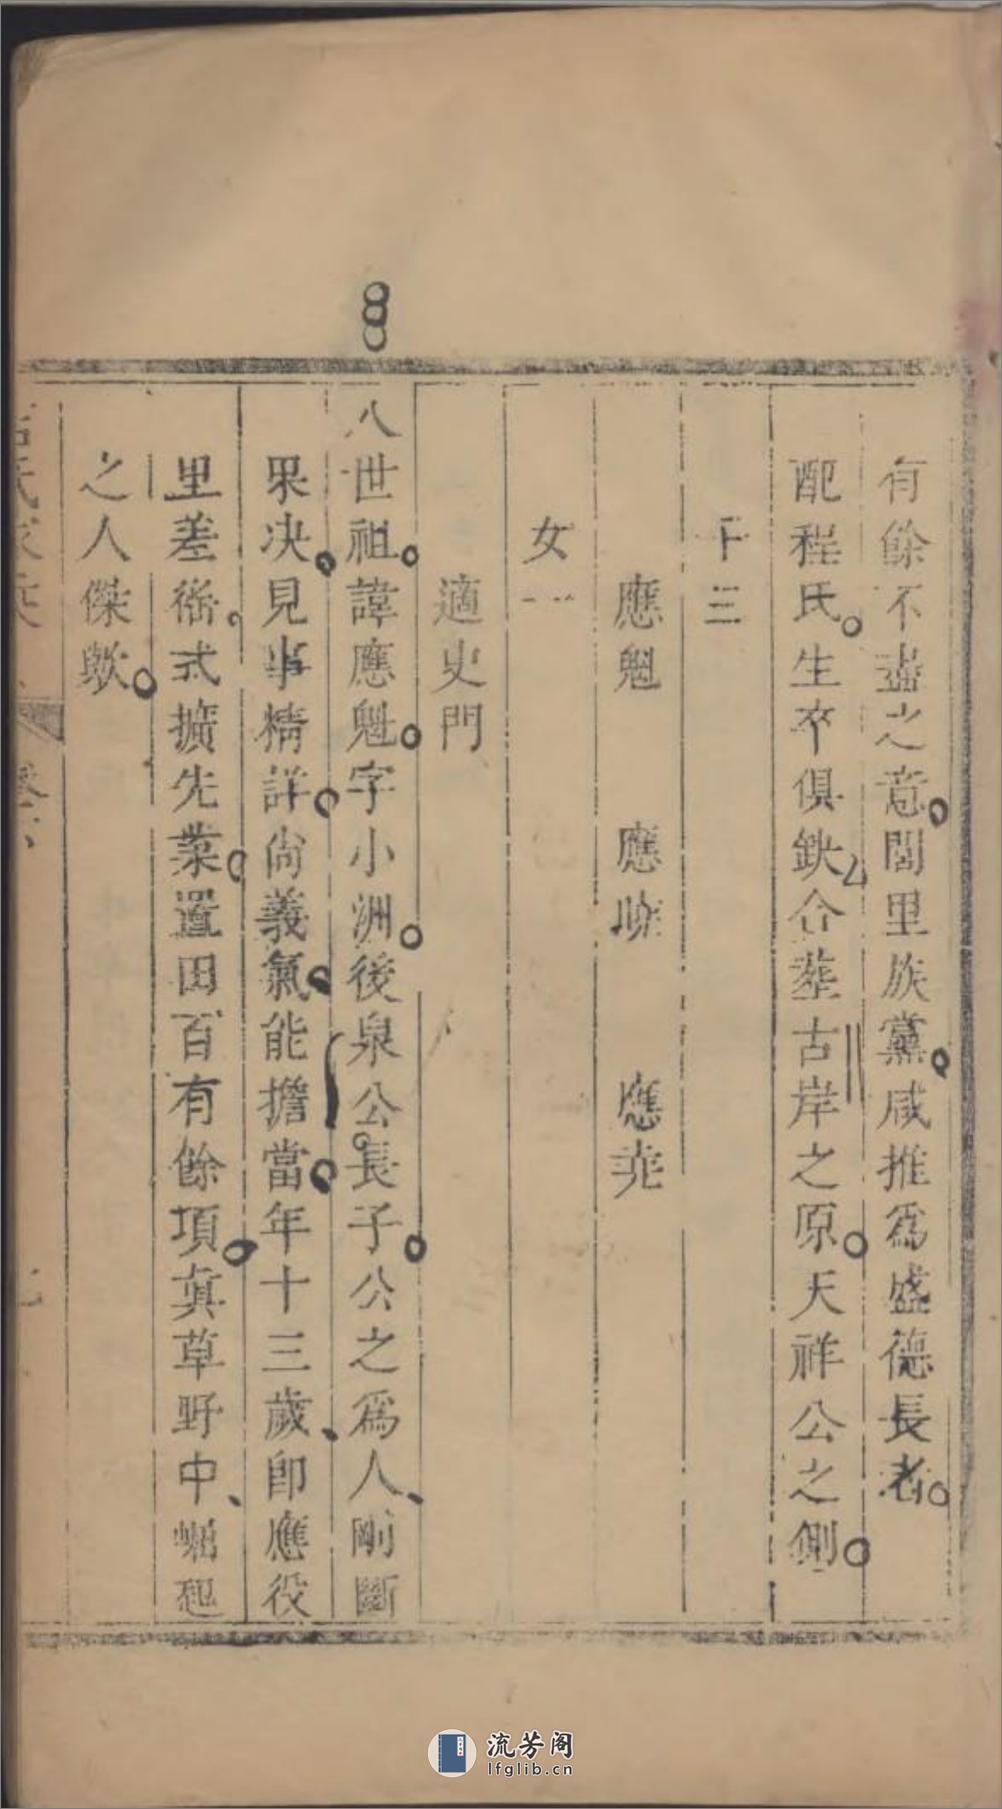 有餘不盡之意閭里族黨咸推爲盛德長者
配程氏生卒俱缺合葬古岸之原天祥公之側
子三
應魁 應 應堯
女一
適史門
八世祖諱應魁字小洲後泉公長子公之爲人剛斷
果決見事精詳尚義氣能擔當年十三歲即應役
里差徭式擴先業置田百有餘項真草野中崛起
之人傑歟
氏家
卷六
七
流芳阁
lfglib.cn